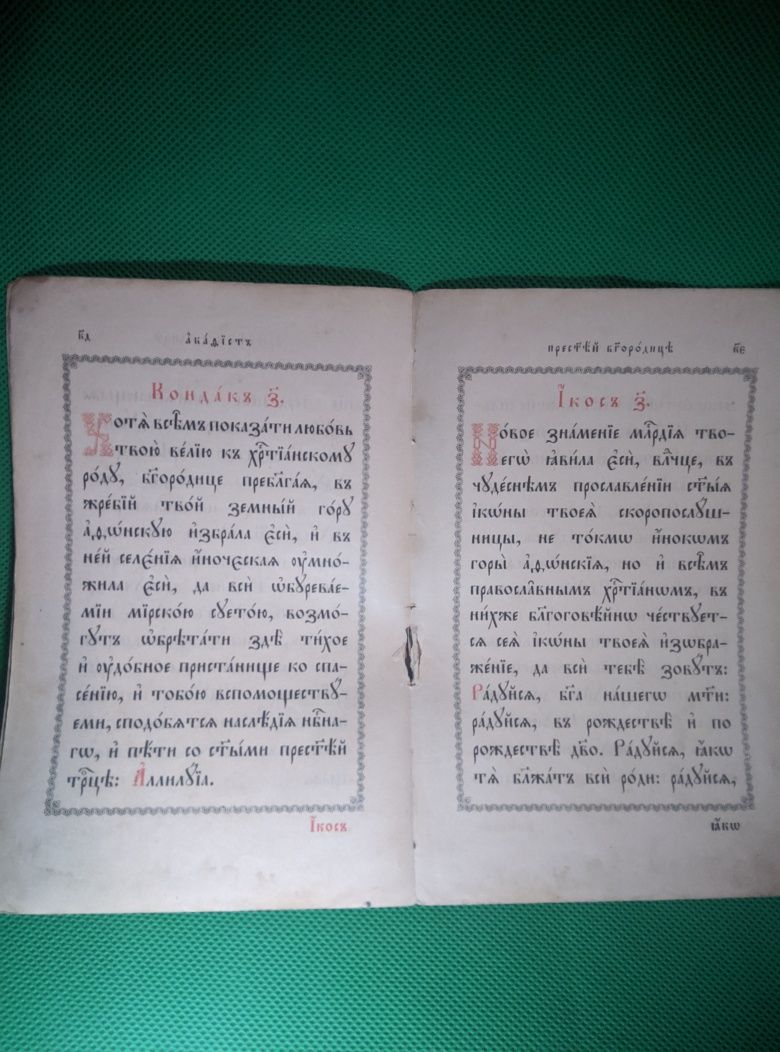 к҃д
а҆ка́ѳїстъ
Конда́къ з҃.
Хотѧ̀ всѣ̑мъ показа́ти любо́вь
твою̀ ве́лїю къ хрⷭ҇тїа́нскому
ро́дꙋ, бг҃оро́дице пребл҃га́ѧ, въ
жре́бїй тво́й земны́й го́рꙋ
а҆ѳѡ́нскꙋю и҆збра́ла є҆сѝ, и҆ въ
не́й селє́нїѧ и҆́ноческаѧ ᲂу҆мно́-
жила є҆сѝ, да всѝ ѡ҆бꙋрева́е-
мїи мїрско́ю сꙋето́ю, возмо́-
гꙋтъ ѡ҆брѣта́ти здѣ̀ ти́хое
и҆ ᲂу҆до́бное приста́нище ко спа-
се́нїю, и҆ тобо́ю вспомоществꙋ́-
еми, сподо́бѧтсѧ наслѣ́дїѧ нбⷭ҇на-
гѡ, и҆ пѣ́ти со ст҃ы́ми прест҃ѣ́й
трⷪ҇цѣ: А҆ллилꙋ́їа.
І҆́косъ
прест҃ѣ́й бг҃оро́дицѣ
к҃є
І҆́косъ з҃.
Но́вое зна́менїе млⷭ҇рдїѧ тво-
егѡ̀ ꙗ҆ви́ла є҆сѝ, влⷣчце, въ
чꙋде́снѣмъ прославле́нїи ст҃ы́ѧ
і҆кѡ́ны твоеѧ̀ скоропослꙋ́ш-
ницы, не то́кмѡ и҆́нокѡмъ
горы̀ а҆ѳѡ́нскїѧ, но и҆ всѣ̑мъ
правосла̑внымъ хрⷭ҇тїа́нѡмъ, въ
ни́хже бл҃гоговѣ́йнѡ че́ствꙋет-
сѧ сеѧ̀ і҆кѡ́ны твоеѧ̀ и҆зѡбра-
же́нїе, да всѝ тебѣ̀ зовꙋ́тъ:
Ра́дꙋйсѧ, бг҃а на́шегѡ мт҃и:
ра́дꙋйсѧ, въ рождествѣ̀ и҆ по
рождествѣ̀ дв҃о. Ра́дꙋйсѧ, ꙗ҆́кѡ
тѧ̀ бл҃жа́тъ всѝ ро́ди: ра́дꙋйсѧ,
ꙗ҆́кѡ